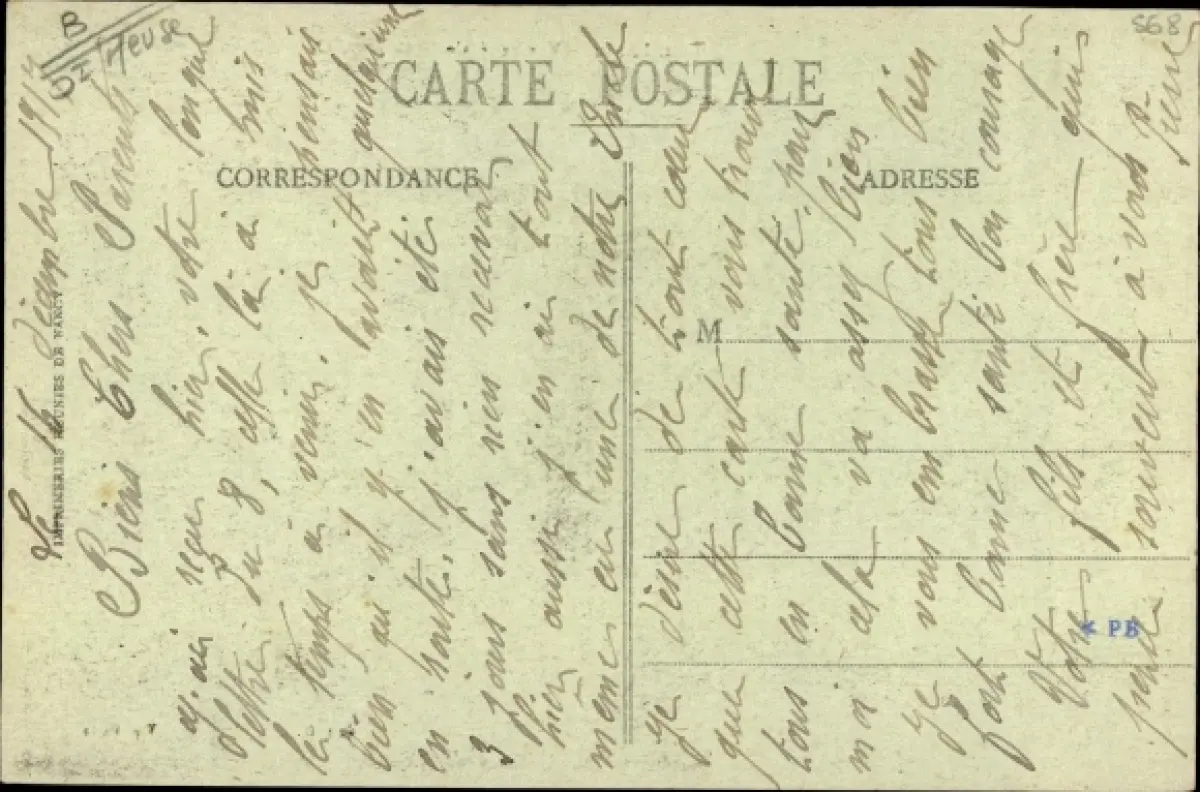 B
Meuse
568
CARTE POSTALE
CORRESPONDANCE
ADRESSE
M
IMPRIMERIES RÉUNIES DE NANCY
PB
Le 16 décembre 191
Biens Chers Parents
J'ai reçu hier, votre longue
lettre du 8, elle là a mis
le temps à venir. Je pensais
bien qu'il y en avait quelqu'une
en route, j'avais été
3 jours sans rien recevoir
hier aussi j'en ai tout
même eu une de notre
Je désire de tout cœur
que cette carte vous trouve
tous en bonne santé, pour
moi cela va assez biens
Je vous embrasse tous bien
fort bonne santé bon courage
Votre fils et frère qui
pense souvent à vous
Pierre